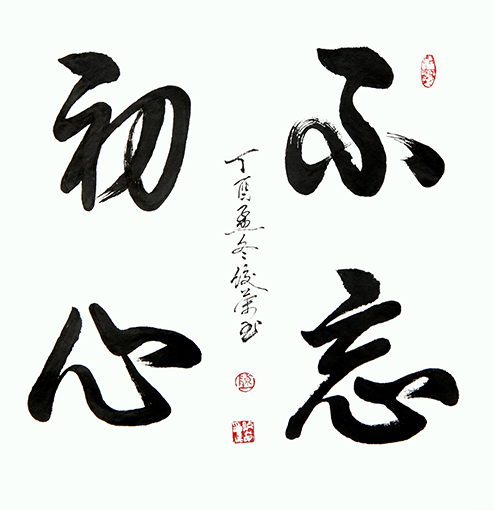 不忘
初心
丁酉孟冬